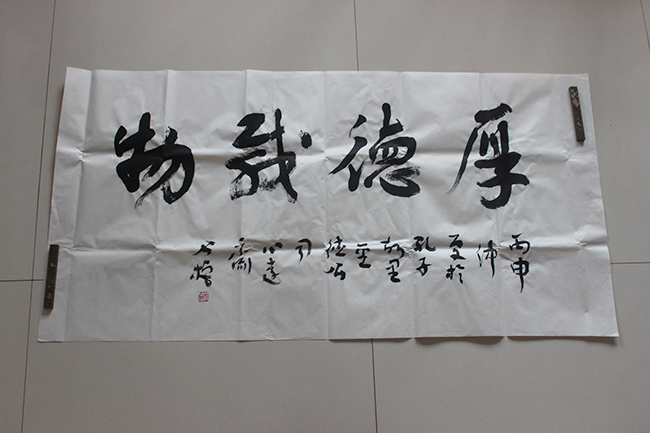 厚德载物
丙申
仲
夏於
孔子
故里
至
德山
司
心遠